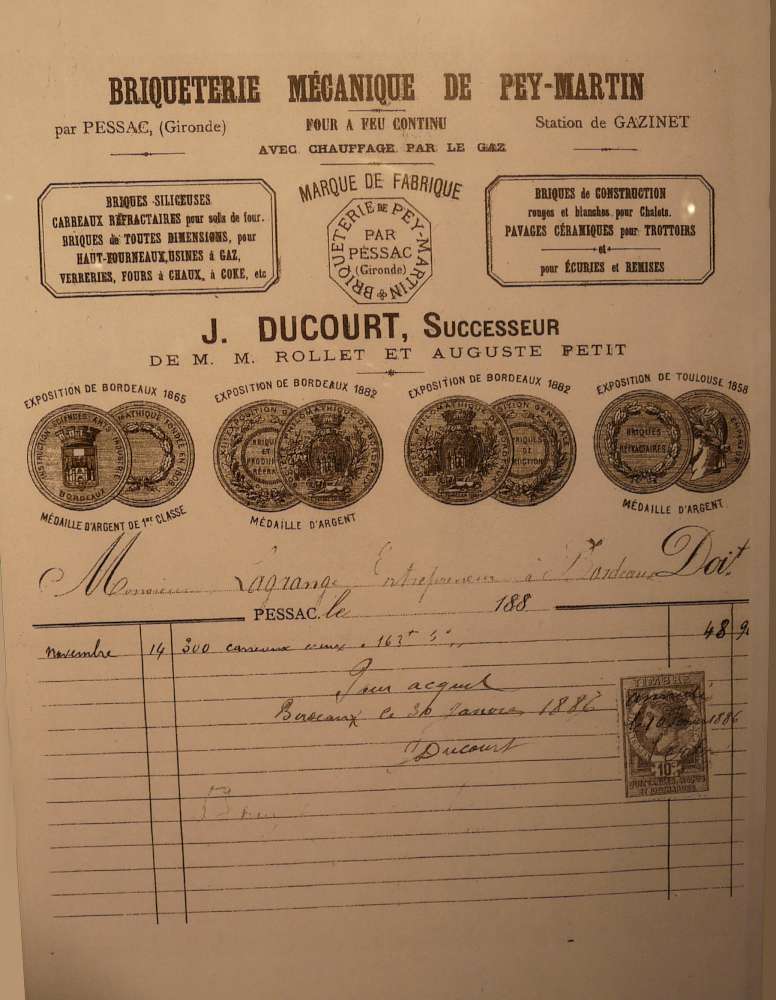 BRIQUETERIE MÉCANIQUE DE PEY-MARTIN
par PESSAC, (Gironde)
FOUR A FEU CONTINU
Station de GAZINET
AVEC CHAUFFAGE PAR LE GAZ
BRIQUES SILICEUSES
CARREAUX RÉFRACTAIRES pour sols de four.
BRIQUES de TOUTES DIMENSIONS, pour
HAUT-FOURNEAUX, USINES à GAZ,
VERRERIES, FOURS à CHAUX, à COKE, etc
MARQUE DE FABRIQUE
BRIQUETERIE DE PEY-MARTIN
PAR
PESSAC
(Gironde)
BRIQUES de CONSTRUCTION
rouges et blanches pour Chalets.
PAVAGES CÉRAMIQUES pour TROTTOIRS
et
pour ÉCURIES et REMISES
J. DUCOURT, SUCCESSEUR
DE M. M. ROLLET ET AUGUSTE PETIT
EXPOSITION DE BORDEAUX 1865
EXPOSITION DE BORDEAUX 1882
EXPOSITION DE BORDEAUX 1882
EXPOSITION DE TOULOUSE 1858
BORDEAUX
BRIQUES
RÉFRACTAIRES
MÉDAILLE D'ARGENT DE 1re CLASSE
MÉDAILLE D'ARGENT
MÉDAILLE D'ARGENT
Monsieur Lagrange Entrepreneur à Bordeaux Doit
PESSAC, le 188
novembre 14 300 carreaux 48
Pour acquit
Bordeaux le 30 Janvier 1886
Ducourt
TIMBRE
1886
10c